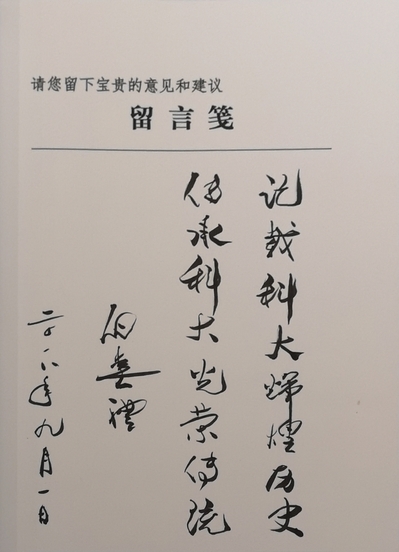 请您留下宝贵的意见和建议
留言笺
记载科大辉煌历史
传承科大光荣传统
白春礼
二〇一八年九月一日